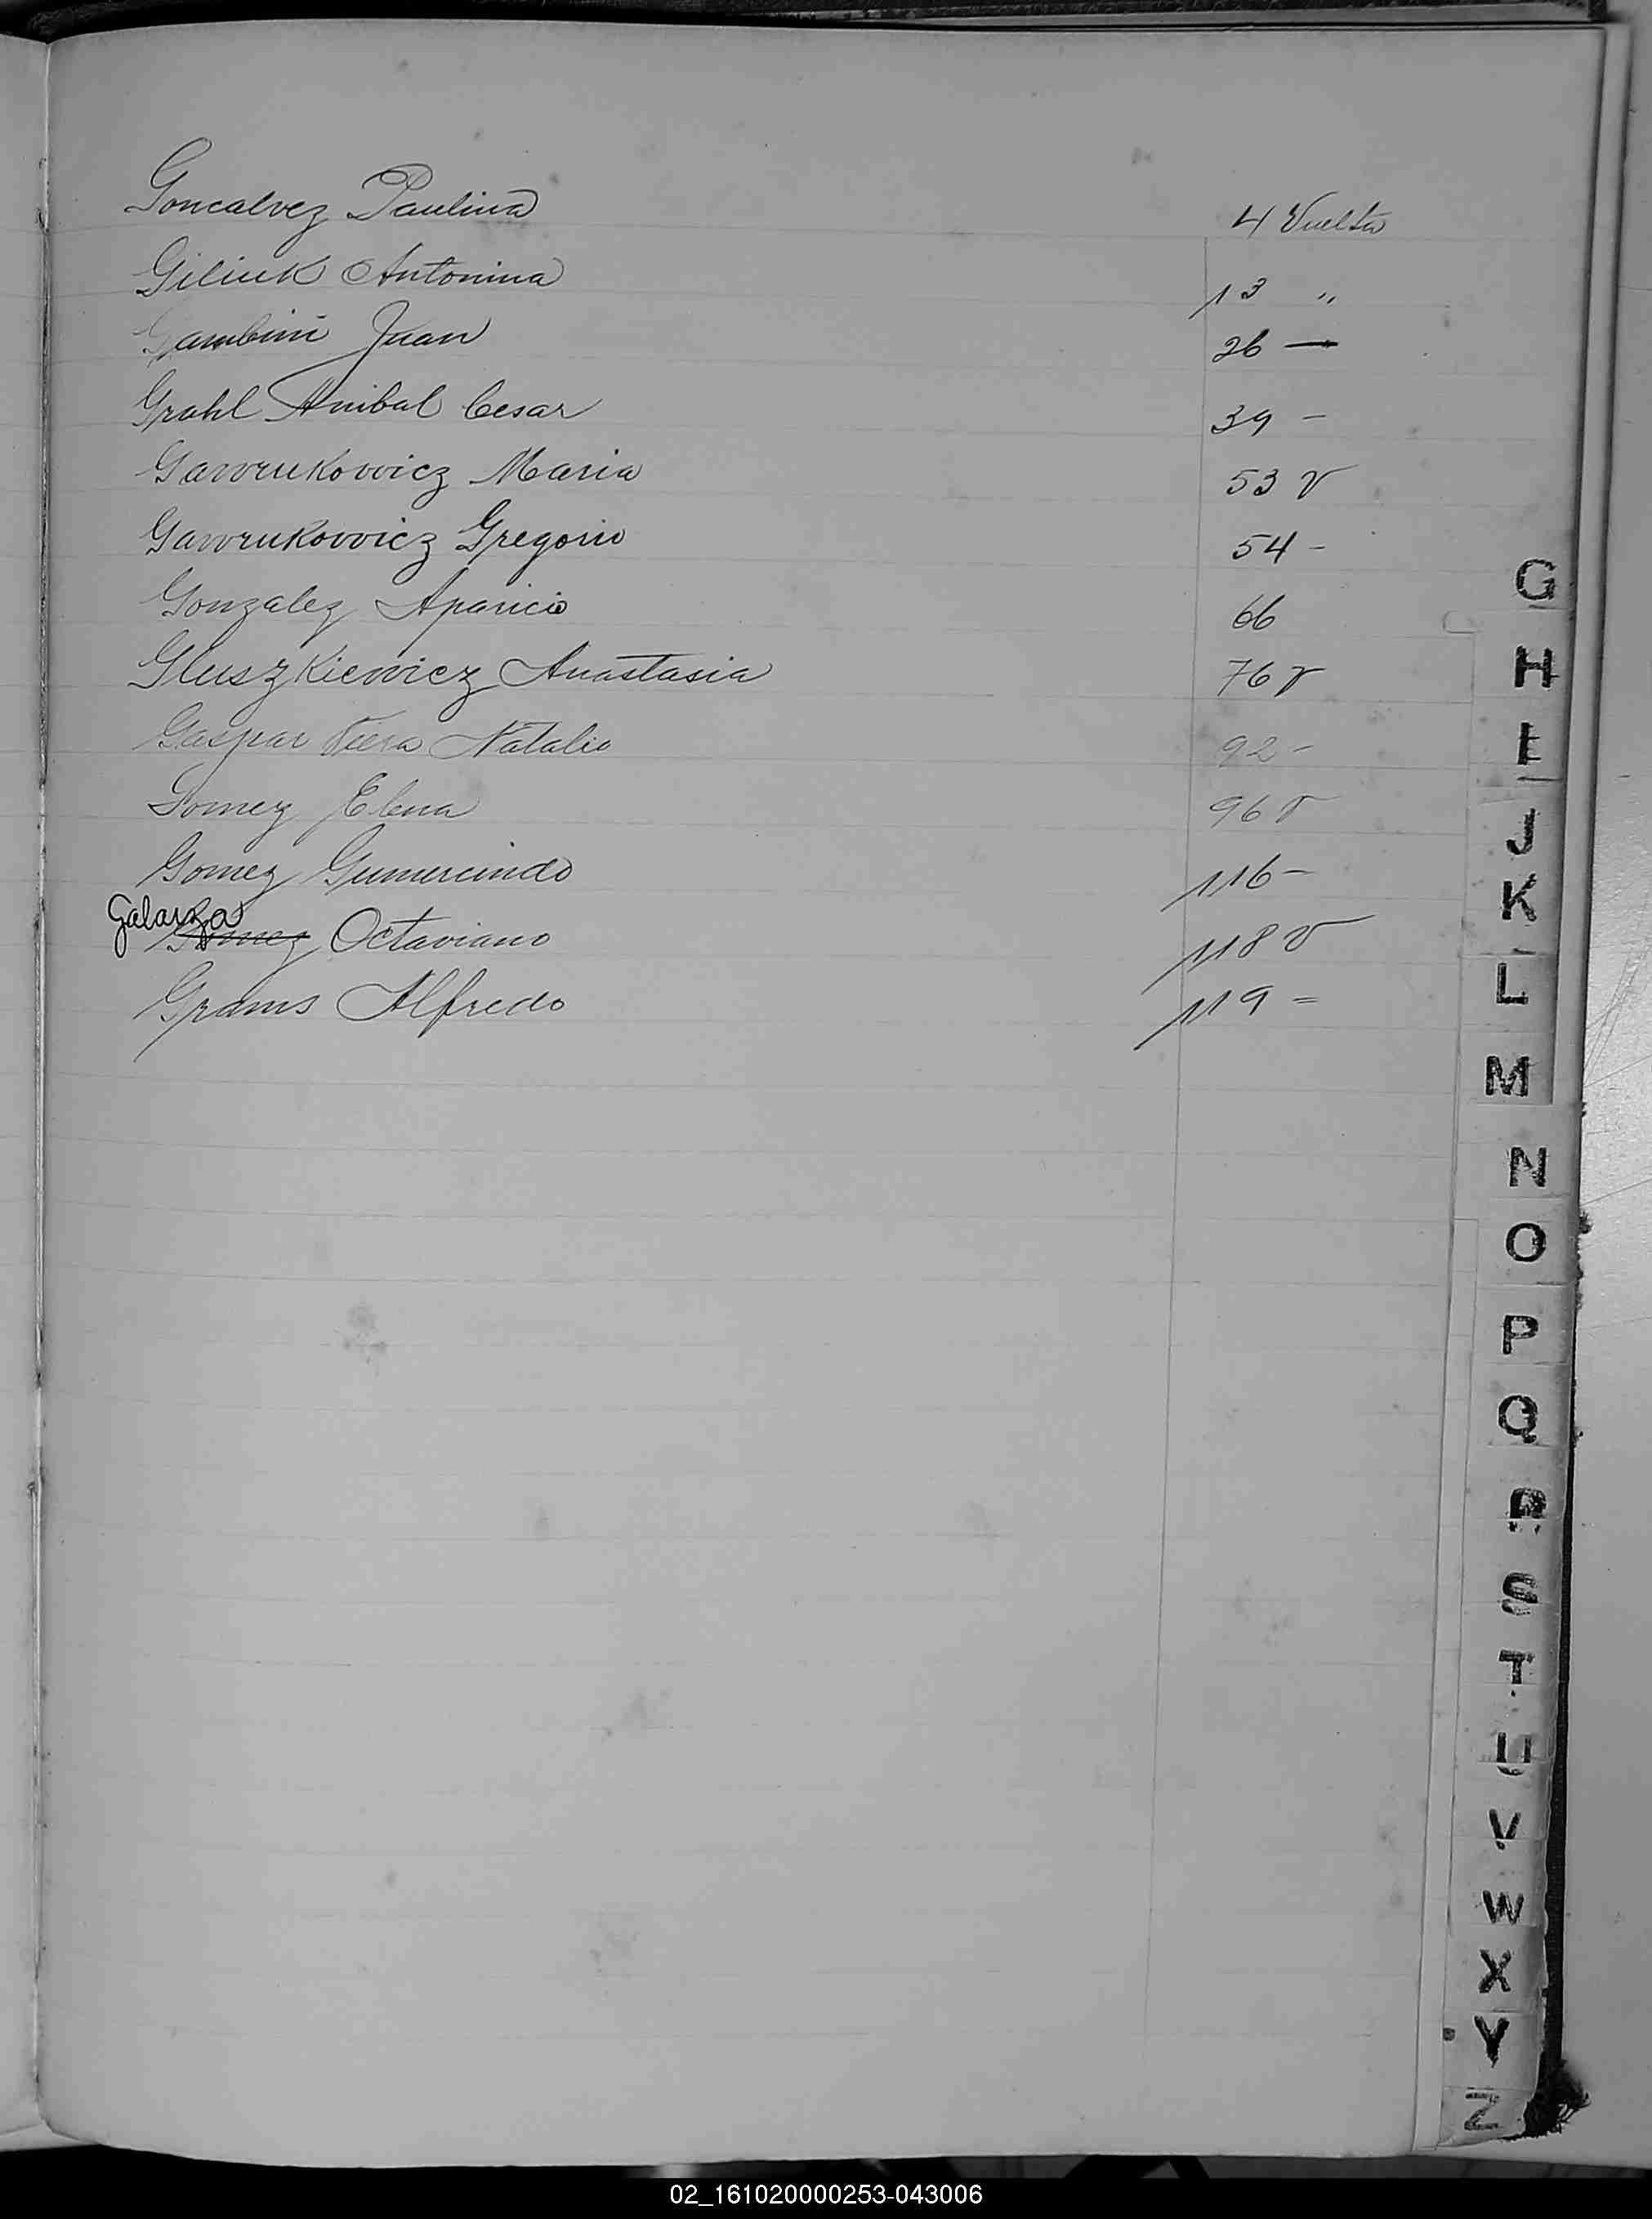 Goncalvez Paulina 4 Vuelta
Giliuk Antonina 13 "
Gambini Juan 26 —
Grahl Anibal Cesar 39 -
Gawrukowicz Maria 53 v
Gawrukowicz Gregorio 54 -
Gonzalez Aparicio 66
Gluszkiewicz Anastasia 76 v
Gaspar Viera Natalio 92 -
Gomez Elena 96 v
Gomez Gumercindo 116 -
Galarza
Gomez Octaviano 118 v
Grams Alfredo 119 =
G
H
I
J
K
L
M
N
O
P
Q
R
S
T
U
V
W
X
Y
Z
02_161020000253-043006